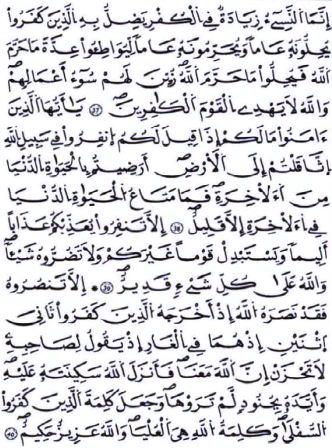 إِنَّمَا اَلنَّسِےٓءُ زِيَادَةٌ فِے اِلْكُفْرِ يَضِلُّ بِهِ اِلذِينَ كَفَرُواْ
يُحِلُّونَهُۥ عَاماً وَيُحَرِّمُونَهُۥ عَاماً لِّيُوَاطِـُٔواْ عِدَّةَ مَا حَرَّمَ
اَللَّهُ فَيُحِلُّواْ مَا حَرَّمَ اَللَّهُ زُيِّنَ لَهُمْ سُوٓءُ اُ۬عْمَالِهِمْ
وَاللَّهُ لَا يَهْدِے اِلْقَوْمَ اَلْكَٰفِرِينَ ٣٧ يَٰٓأَيُّهَا اَلذِينَ
ءَامَنُواْ مَا لَكُمْ إِذَا قِيلَ لَكُمُ اُنفِرُواْ فِے سَبِيلِ اِللَّهِ
اِثَّاقَلْتُمْ إِلَى اَلْأَرْضِ أَرَضِيتُم بِالْحَيَوٰةِ اِلدُّنْيَا
مِنَ اَءَلَاخِرَةِ فَمَا مَتَٰعُ اُلْحَيَوٰةِ اِلدُّنْيَا
فِے اِءَلَاخِرَةِ إِلَّا قَلِيلٌ ٣٨ إِلَّا تَنفِرُواْ يُعَذِّبْكُمْ عَذَاباً
أَلِيماً وَيَسْتَبْدِلْ قَوْماً غَيْرَكُمْ وَلَا تَضُرُّوهُ شَيْـٔاً
وَاللَّهُ عَلَىٰ كُلِّ شَےْءٍ قَدِيرٌ ٣٩ إِلَّا تَنصُرُوهُ
فَقَدْ نَصَرَهُ اُللَّهُ إِذْ أَخْرَجَهُ اُلذِينَ كَفَرُواْ ثَانِيَ
اَثْنَيْنِ إِذْ هُمَا فِے اِلْغَارِ إِذْ يَقُولُ لِصَٰحِبِهِۦ
لَا تَحْزَنْ إِنَّ اَللَّهَ مَعَنَا فَأَنزَلَ اَللَّهُ سَكِينَتَهُۥ عَلَيْهِ
وَأَيَّدَهُۥ بِجُنُودٍ لَّمْ تَرَوْهَا وَجَعَلَ كَلِمَةَ اَلذِينَ كَفَرُواْ
اُلسُّفْلَىٰ وَكَلِمَةُ اُللَّهِ هِيَ اَلْعُلْيَا وَاللَّهُ عَزِيزٌ حَكِيمٌ ٤٠